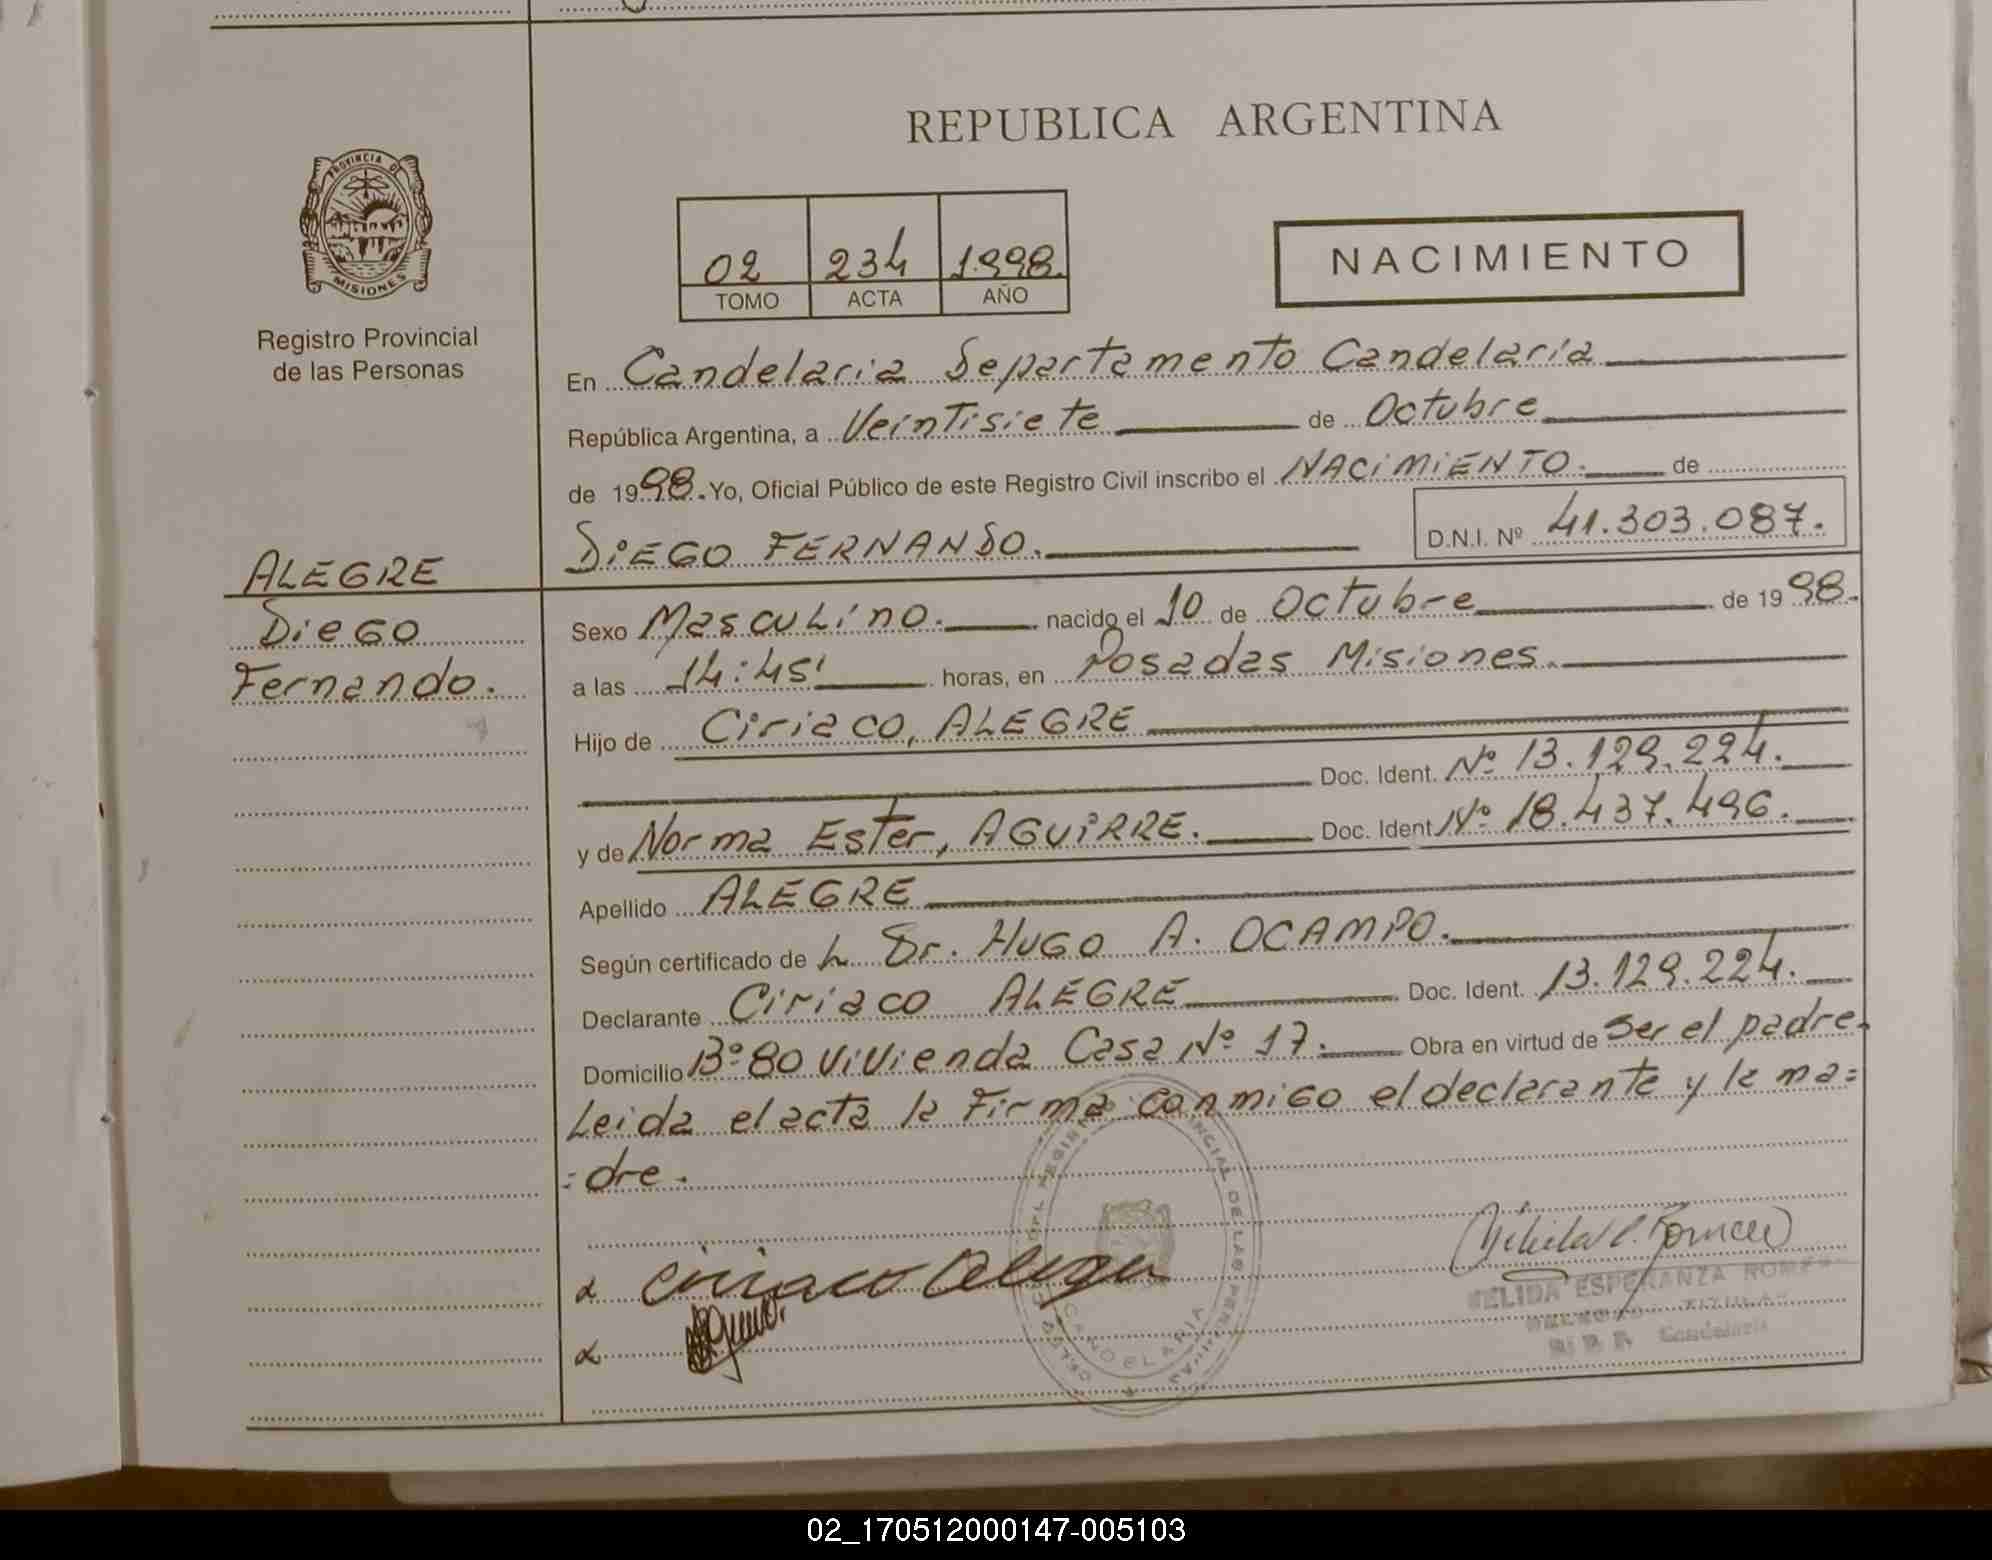 REPUBLICA ARGENTINA
PROVINCIA D
MISIONES
Registro Provincial
de las Personas
02 234 1.998.
TOMO ACTA AÑO
NACIMIENTO
En Candelaria Departamento Candelaria
República Argentina, a Veintisiete de Octubre
de 1998. Yo, Oficial Público de este Registro Civil inscribo el NACIMIENTO. de
DIEGO FERNANDO. D.N.I. Nº 41.303.087.
ALEGRE
Diego
Fernando.
Sexo Masculino. nacido el 10 de Octubre de 1998.
a las 14:45' horas, en Posadas Misiones.
Hijo de Ciriaco, ALEGRE
Doc. Ident. Nº 13.129.224.
y de Norma Ester, AGUIRRE. Doc. Ident Nº 18.437.496.
Apellido ALEGRE
Según certificado de L Dr. HUGO A. OCAMPO.
Declarante Ciriaco ALEGRE Doc. Ident. 13.129.224.
Domicilio Bº 80 vivienda Casa Nº 17. Obra en virtud de ser el padre.
Leida el acta la Firma conmigo el declarante y la ma=
=dre.
Ciriaco Alegre
CANDELARIA
ELIDA ESPERANZA ROME
TITULAR
Candelaria
02_170512000147-005103